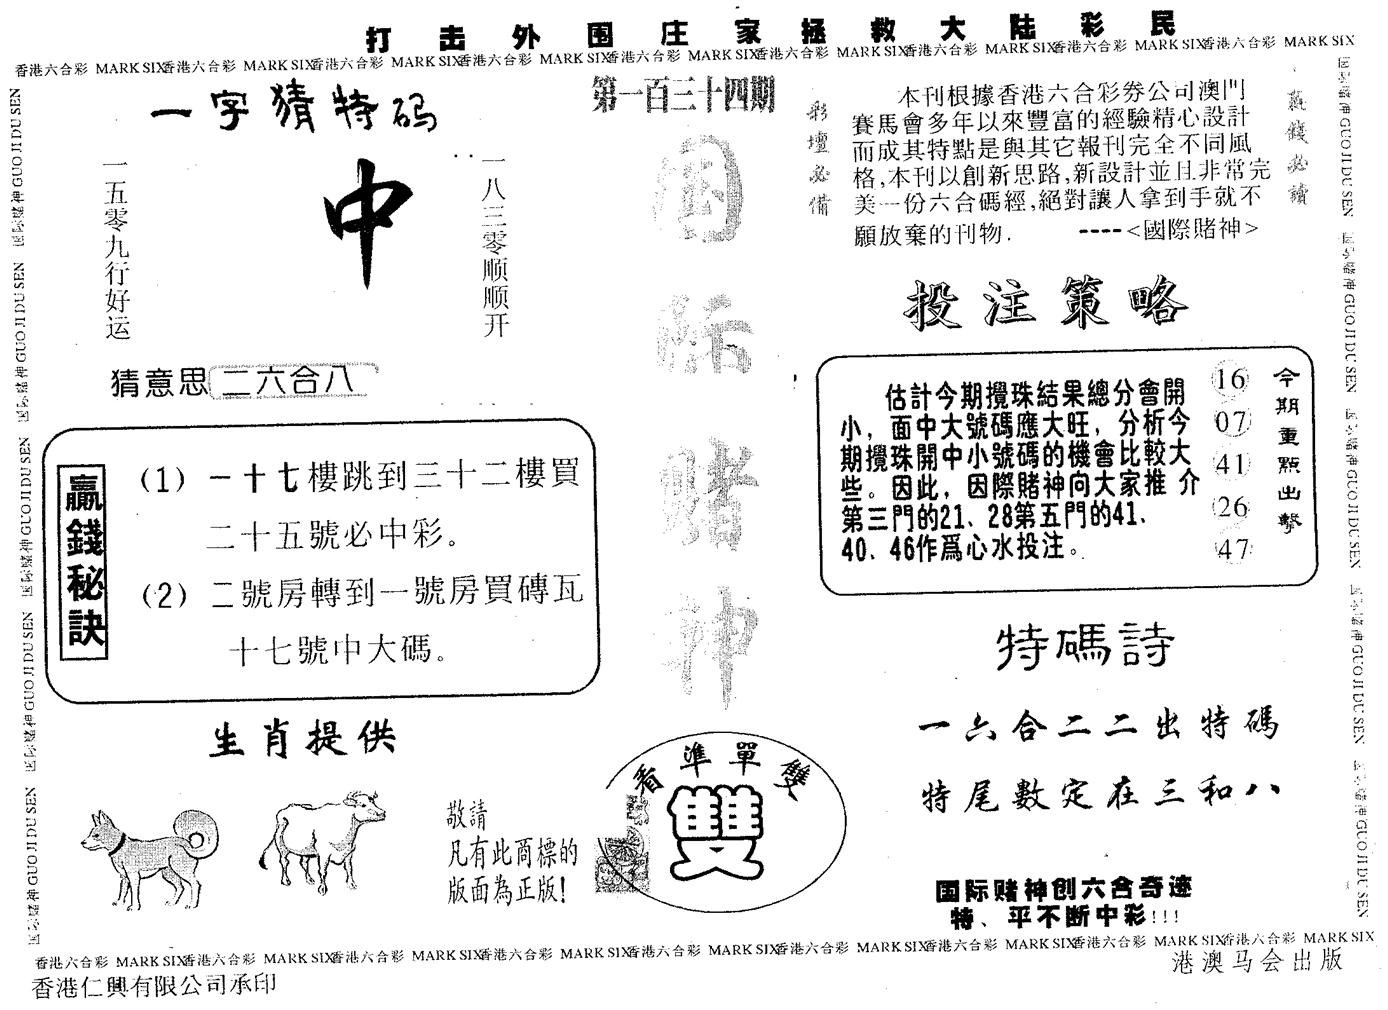 打击外围庄家拯救大陆彩民
香港六合彩 MARK SIX香港六合彩 MARK SIX香港六合彩 MARK SIX香港六合彩 MARK SIX香港六合彩 MARK SIX香港六合彩 MARK SIX香港六合彩 MARK SIX香港六合彩 MARK SIX香港六合彩 MARK SIX
国际赌神 GUO JI DU SEN 国际赌神 GUO JI DU SEN 国际赌神 GUO JI DU SEN 国际赌神 GUO JI DU SEN 国际赌神 GUO JI DU SEN
一字猜特码
一八三零顺顺开
中
一五零九行好运
猜意思 二六合八
贏錢秘訣
(1) 一十七樓跳到三十二樓買
二十五號必中彩。
(2) 二號房轉到一號房買磚瓦
十七號中大碼。
生肖提供
敬請
凡有此商標的
版面為正版!
第一百三十四期
国际赌神
看準單雙
雙
彩壇必備
本刊根據香港六合彩券公司澳門
賽馬會多年以來豐富的經驗精心設計
而成其特點是與其它報刊完全不同風
格,本刊以創新思路,新設計並且非常完
美一份六合碼經,絕對讓人拿到手就不
願放棄的刊物. ----<國際賭神>
贏錢必讀
投注策略
估計今期攪珠結果總分會開
小，面中大號碼應大旺，分析今
期攪珠開中小號碼的機會比較大
些。因此，因際賭神向大家推 介
第三門的21、28第五門的41、
40、46作爲心水投注。
16
07
41
26
47
今期重點出擊
特碼詩
一六合二二出特碼
特尾數定在三和八
国际赌神创六合奇迹
特、平不断中彩!!!
国际赌神 GUO JI DU SEN 国际赌神 GUO JI DU SEN 国际赌神 GUO JI DU SEN 国际赌神 GUO JI DU SEN 国际赌神 GUO JI DU SEN
香港六合彩 MARK SIX香港六合彩 MARK SIX香港六合彩 MARK SIX香港六合彩 MARK SIX香港六合彩 MARK SIX香港六合彩 MARK SIX香港六合彩 MARK SIX香港六合彩 MARK SIX香港六合彩 MARK SIX
香港仁興有限公司承印
港澳马会出版